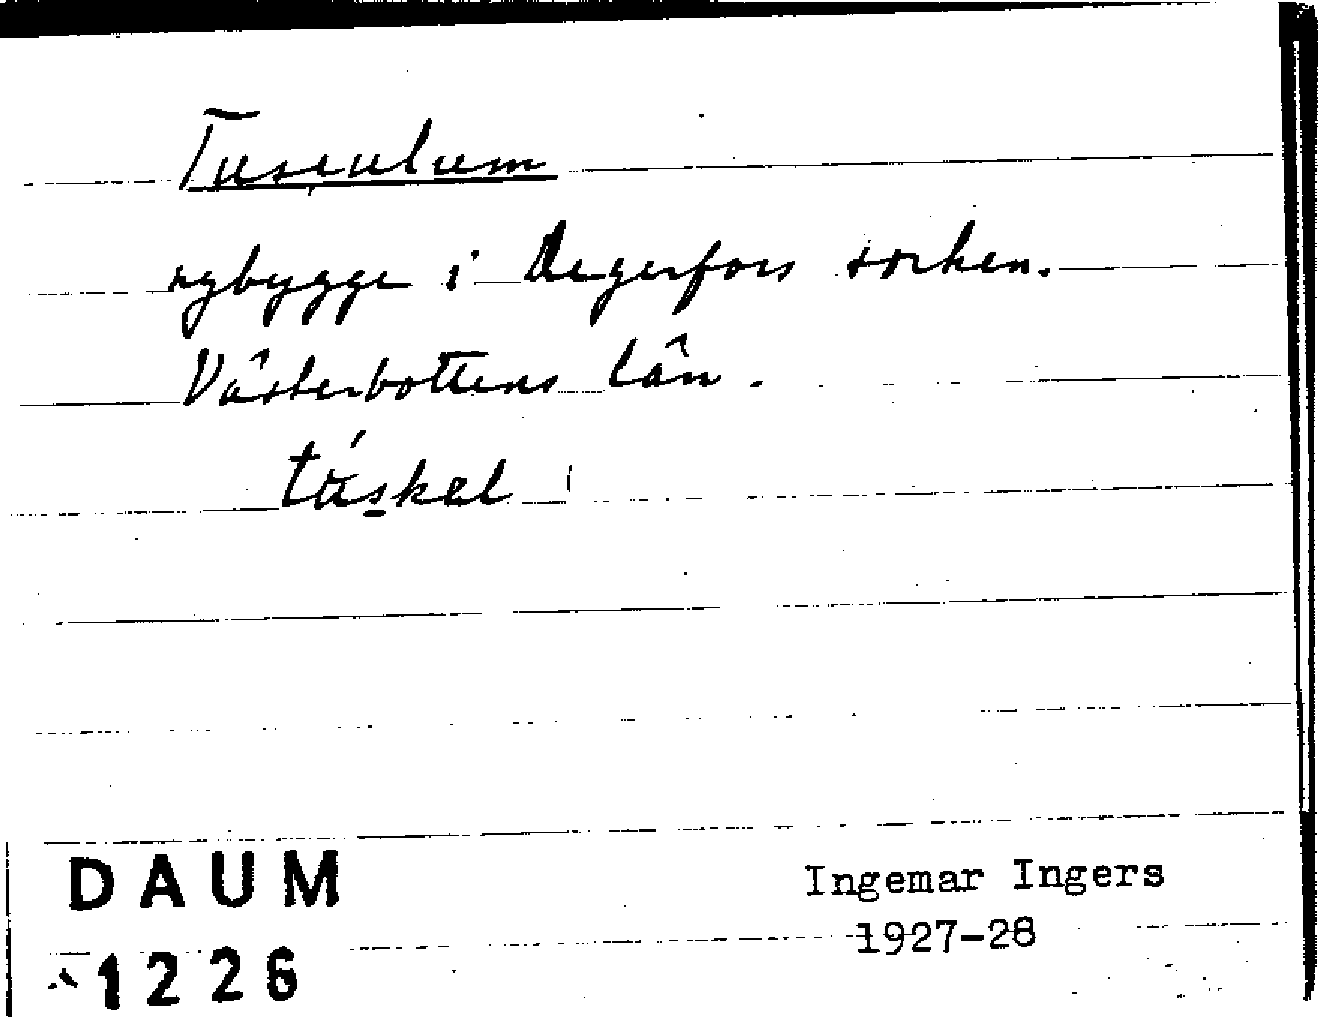 Tusculum
nybygge i Degerfors socken.
Västerbottens län.
táskel
DAUM
1226
Ingemar Ingers
1927-28